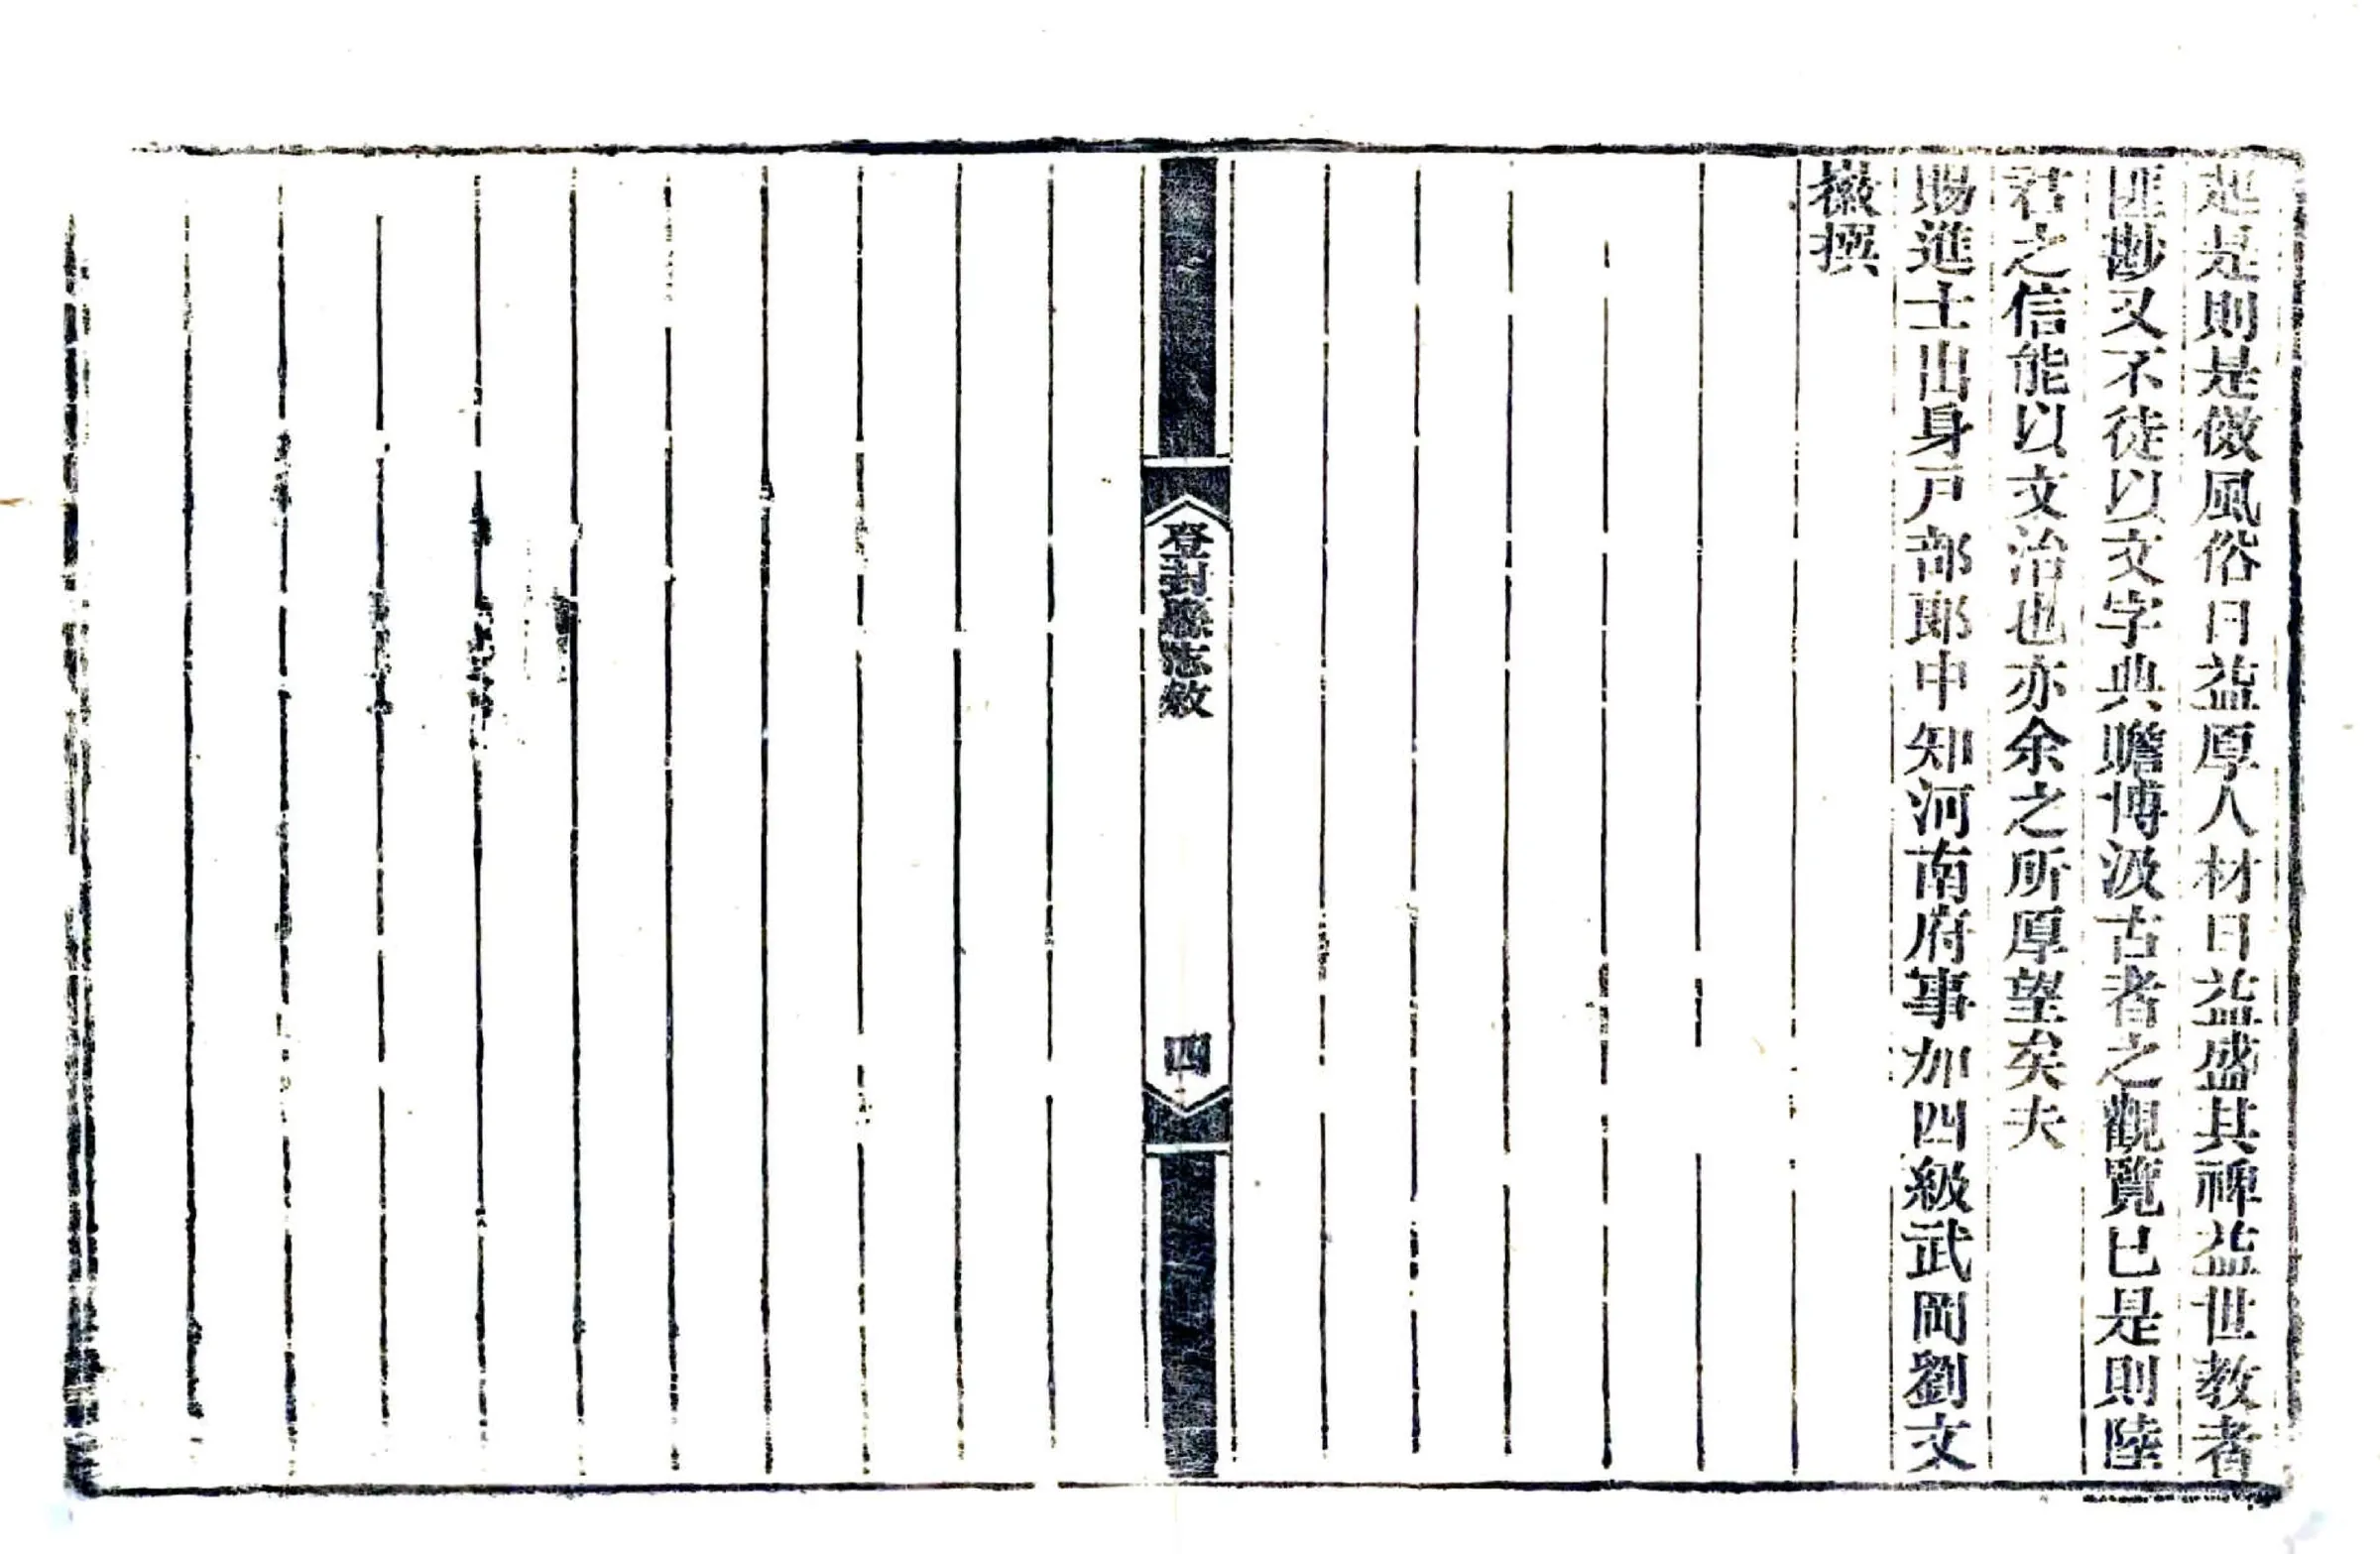 起是則是儆風俗日益厚人材日益盛其裨益世教者
匪尠又不徒以文字典贍博汲古者之觀覽已是則陸
君之信能以文治也亦余之所厚望矣夫
賜進士出身戸部郎中知河南府事加四級武岡劉文
徽撰
登封縣志敘
四